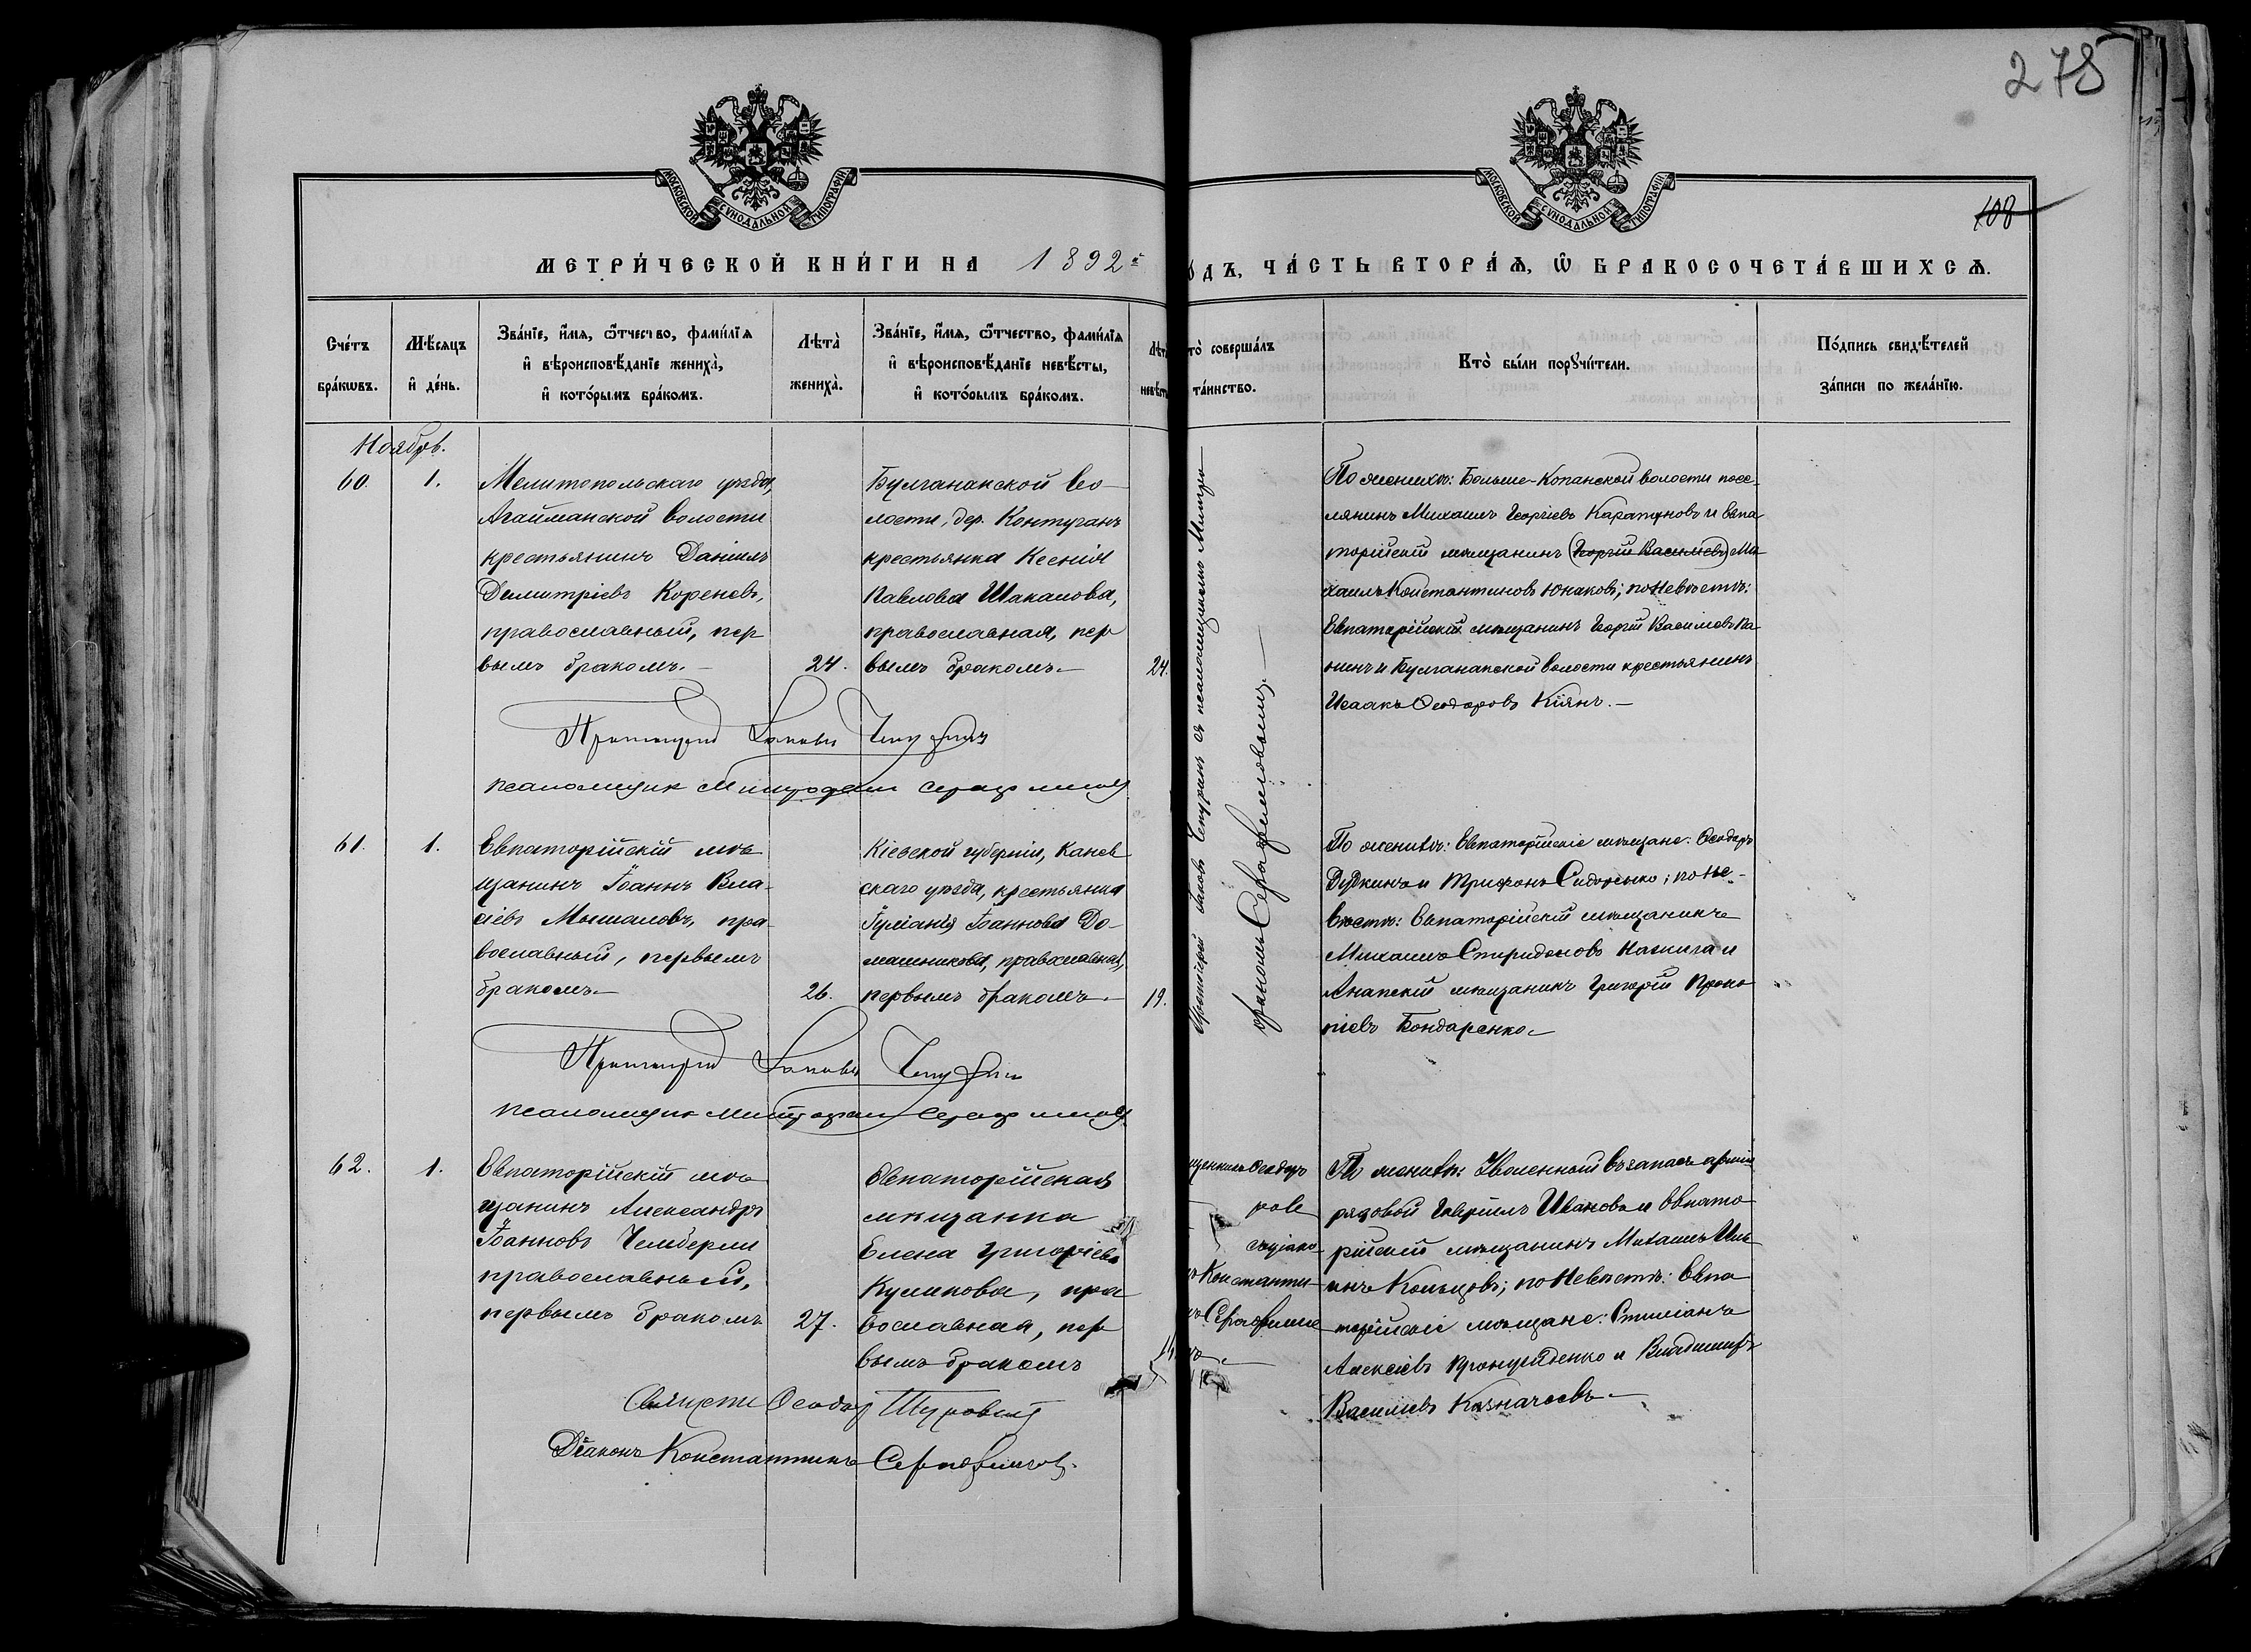 278
108
МОСКОВСКОЙ СѴНОДАЛЬНОЙ ТИПОГРАФІИ
МОСКОВСКОЙ СѴНОДАЛЬНОЙ ТИПОГРАФІИ
МЕТРИ́ЧЕСКОЙ КНИ́ГИ НА 1892й
О́ДЪ, ЧА́СТЬ ВТОРА́Ѧ, Ѡ҆ БРАКОСОЧЕТА́ВШИХСѦ.
Сче́тъ бра́кѡвъ.
Мѣ́сяцъ и҆ де́нь.
Зва́нїе, и҆́мѧ, ѻ҆́тчество, фами́лїѧ и҆ вѣроисповѣ́данїе жениха̀, и҆ кото́рымъ бра́комъ.
Лѣта̀ жениха̀.
Зва́нїе, и҆́мѧ, ѻ҆́тчество, фами́лїѧ и҆ вѣроисповѣ́данїе невѣ́сты, и҆ кото́рымъ бра́комъ.
Лѣт невѣст
то̀ соверша́лъ та́инство.
Кто̀ бы́ли порꙋчи́тели.
По́дпись свидѣ́телей за́писи по жела́нїю.
Ноябрь.
60.
1.
Мелитопольскаго уѣзда,
Агайманской волости
крестьянинъ Даніилъ
Димитріевъ Кореневъ,
православный, пер
вымъ бракомъ.
24.
Булганакской во-
лости, дер. Контуганъ
крестьянка Ксенія
Павлова Шакалова,
православная, пер
вымъ бракомъ.
24.
Протоіерей Іаковъ Чепуринъ съ псаломщикомъ Митро
фаномъ Серафимовымъ.
По женихѣ: Больше-Копанской волости посе-
лянинъ Михаилъ Георгіевъ Каратуновъ и Евпа
торійскій мѣщанинъ (Георгій Василіевъ) Ми-
хаилъ Константиновъ Юнаковъ; по невѣстѣ:
Евпаторійскій мѣщанинъ Георгій Василіевъ Па-
нинъ и Булганакской волости крестьянинъ
Исаакъ Ѳеодоровъ Кіянъ.
Протоіерей Іаковъ Чепуринъ
псаломщик Митрофан Серафимовъ
61.
1.
Евпаторійскій мѣ
щанинъ Іоаннъ Вла-
сіевъ Мышаловъ, пра-
вославный, первымъ
бракомъ.
26.
Кіевской губерніи, Канев
скаго уѣзда, крестьянка
Іуліанія Іоаннова До-
машникова, православная,
первымъ бракомъ.
19.
По женихѣ: Евпаторійскіе мѣщане: Ѳеодоръ
Дудкинъ и Трифонъ Сидоренко; по не-
вѣстѣ: Евпаторійскій мѣщанинъ
Михаилъ Спиридоновъ и
Анапскій мѣщанинъ Григорій Проко
піевъ Бондаренко.
Протоіерей Іаковъ Чепурин
псаломщик Митрофан Серафимовъ
62.
1.
Евпаторійскій мѣ
щанинъ Александръ
Іоанновъ Чемберли
православный,
первымъ бракомъ
27.
Евпаторійская
мѣщанка
Елена Григоріева
Куликова, пра
вославная, пер
вымъ бракомъ
щенникъ Ѳеодоръ
ъ Константи
ъ Серафимо
По женихѣ: Уволенный въ запасъ арміи
рядовой Гавріилъ Ивановъ и Евпато
рійскій мѣщанинъ Михаилъ Иль
инъ Кольцовъ; по невѣстѣ: Евпа
торійскіе мѣщане: Стиліанъ
Алексіевъ и Владиміръ
Василіевъ Казначеевъ.
Священ Ѳеодор
Діаконъ Константинъ Серафимов.